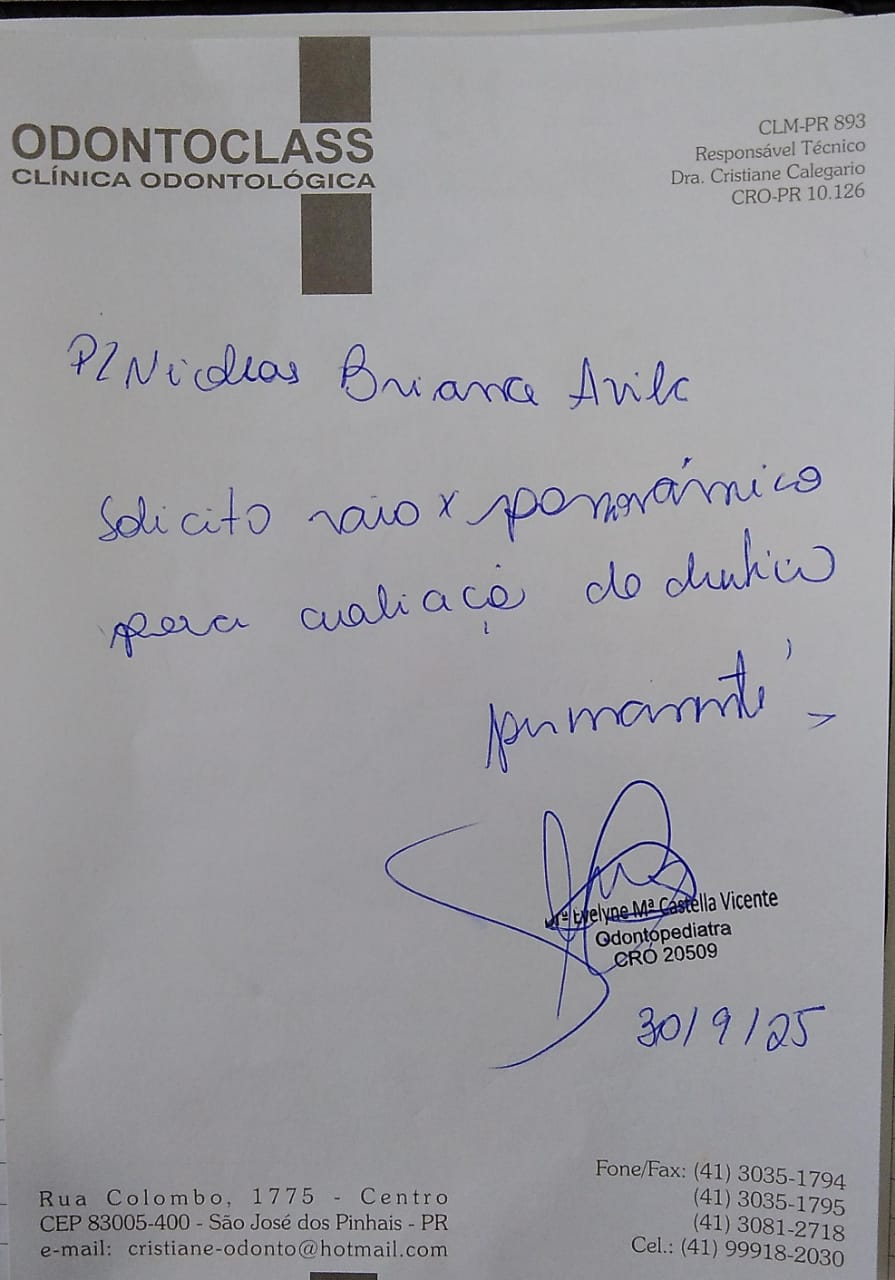 ODONTOCLASS
CLÍNICA ODONTOLÓGICA
CLM-PR 893
Responsável Técnico
Dra. Cristiane Calegario
CRO-PR 10.126
P/ Nicolas Avila
Solicito raio x panorâmico
para avaliaçã do
permanente
Evelyne Mª Castella Vicente
Odontopediatra
CRO 20509
30/9/25
Rua Colombo, 1775 - Centro
CEP 83005-400 - São José dos Pinhais - PR
e-mail: cristiane-odonto@hotmail.com
Fone/Fax: (41) 3035-1794
(41) 3035-1795
(41) 3081-2718
Cel.: (41) 99918-2030